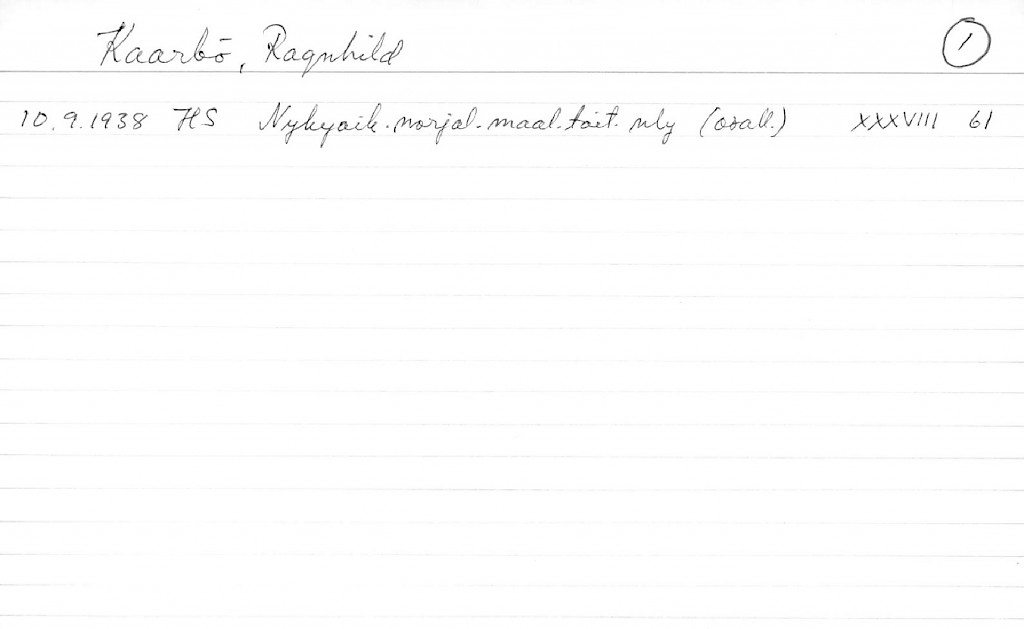 Kaarbö, Ragnhild 1
10.9.1938 HS Nykyaik. norjal. maal. tait. nly (osall.) XXXVIII 61